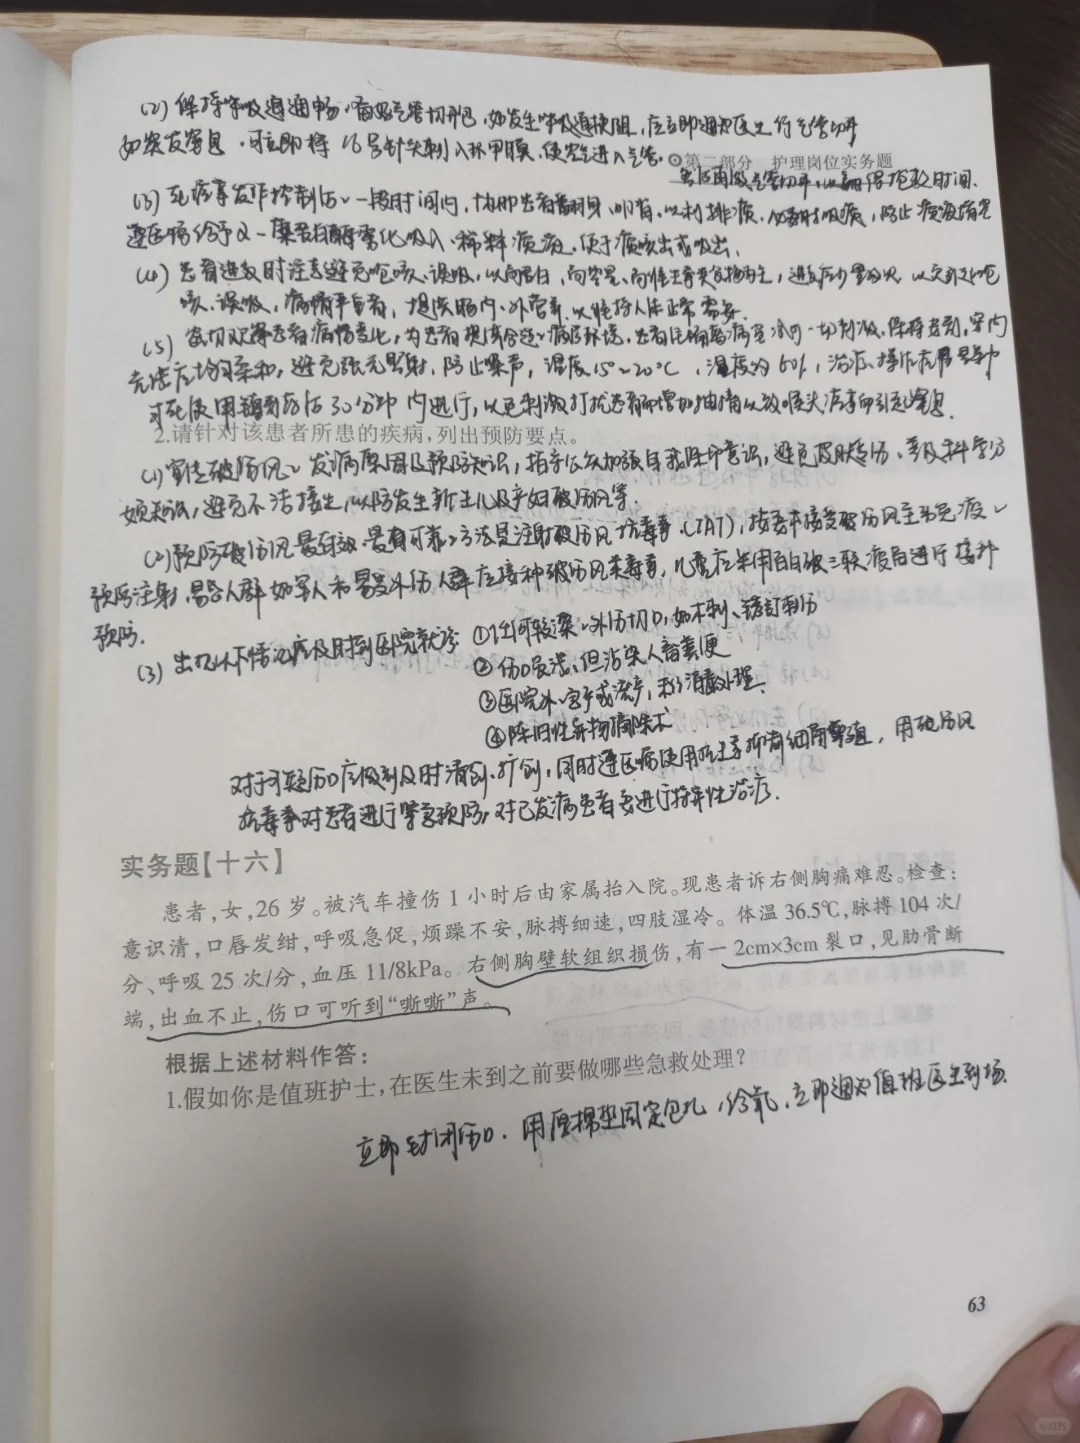 (2) 保持呼吸道通畅,备好气管切开包,如发生呼吸道梗阻,应立即通知医生行气管切开
如突发窒息,可立即将16号针头刺入环甲膜,使空气进入气管,
第二部分 护理岗位实务题
然后再做气管切开,以赢得抢救时间.
(3) 在痉挛发作控制后的一段时间内,协助患者翻身、叩背,以利排痰,必要时吸痰,防止痰液堵塞
遵医嘱给予α-糜蛋白酶雾化吸入,稀释痰液,便于痰咳出或吸出.
(4) 患者进食时注意避免呛咳、误吸,以高蛋白,高热量、高维生素
咳、误吸,病情严重者,提供肠内、外营养,以维持人体正常需要.
(5) 密切观察患者病情变化,为患者提供合适的病房环境,患者住隔离病室,减少一切刺激,保持安静,室内
光线应均匀柔和,避免强光照射,防止噪声,温度15~20℃,湿度约60%,治疗、操作
使用镇静药后30分钟内进行,以免刺激打扰患者而增加抽搐以致喉头痉挛而引起窒息.
2.请针对该患者所患的疾病,列出预防要点。
(1) 宣传破伤风的发病原因及预防知识,指导公众加强自我保护意识,避免皮肤受伤、普及科学分
娩知识,避免不洁接生,以防发生新生儿及产妇破伤风等.
(2) 预防破伤风最有效、最可靠的方法是注射破伤风抗毒素(TAT),按要求接受破伤风主动免疫的
预防注射,易感人群如军人和易受外伤人群应接种破伤风类毒素,儿童应采用百白破三联疫苗进行接种
预防.
(3) 出现以下情况应及时到医院就诊 ①任何较深的外伤切口,如木刺、锈钉刺伤
②伤口虽浅,但沾染人畜粪便
③医院外的急产或流产,未经消毒处理.
④陈旧性异物摘除术
对于可疑伤口应做到及时清创、扩创,同时遵医嘱使用抗生素抑制细菌繁殖,用破伤风
抗毒素对患者进行紧急预防,对已发病患者要进行特异性治疗.
实务题【十六】
患者,女,26岁。被汽车撞伤1小时后由家属抬入院。现患者诉右侧胸痛难忍。检查:
意识清,口唇发绀,呼吸急促,烦躁不安,脉搏细速,四肢湿冷。体温36.5℃,脉搏104次/
分、呼吸25次/分,血压11/8kPa。右侧胸壁软组织损伤,有一2cm×3cm裂口,见肋骨断
端,出血不止,伤口可听到“嘶嘶”声。
根据上述材料作答:
1.假如你是值班护士,在医生未到之前要做哪些急救处理?
立即封闭伤口,用厚棉垫固定包扎,给氧,立即通知值班医生到场.
63
小红书